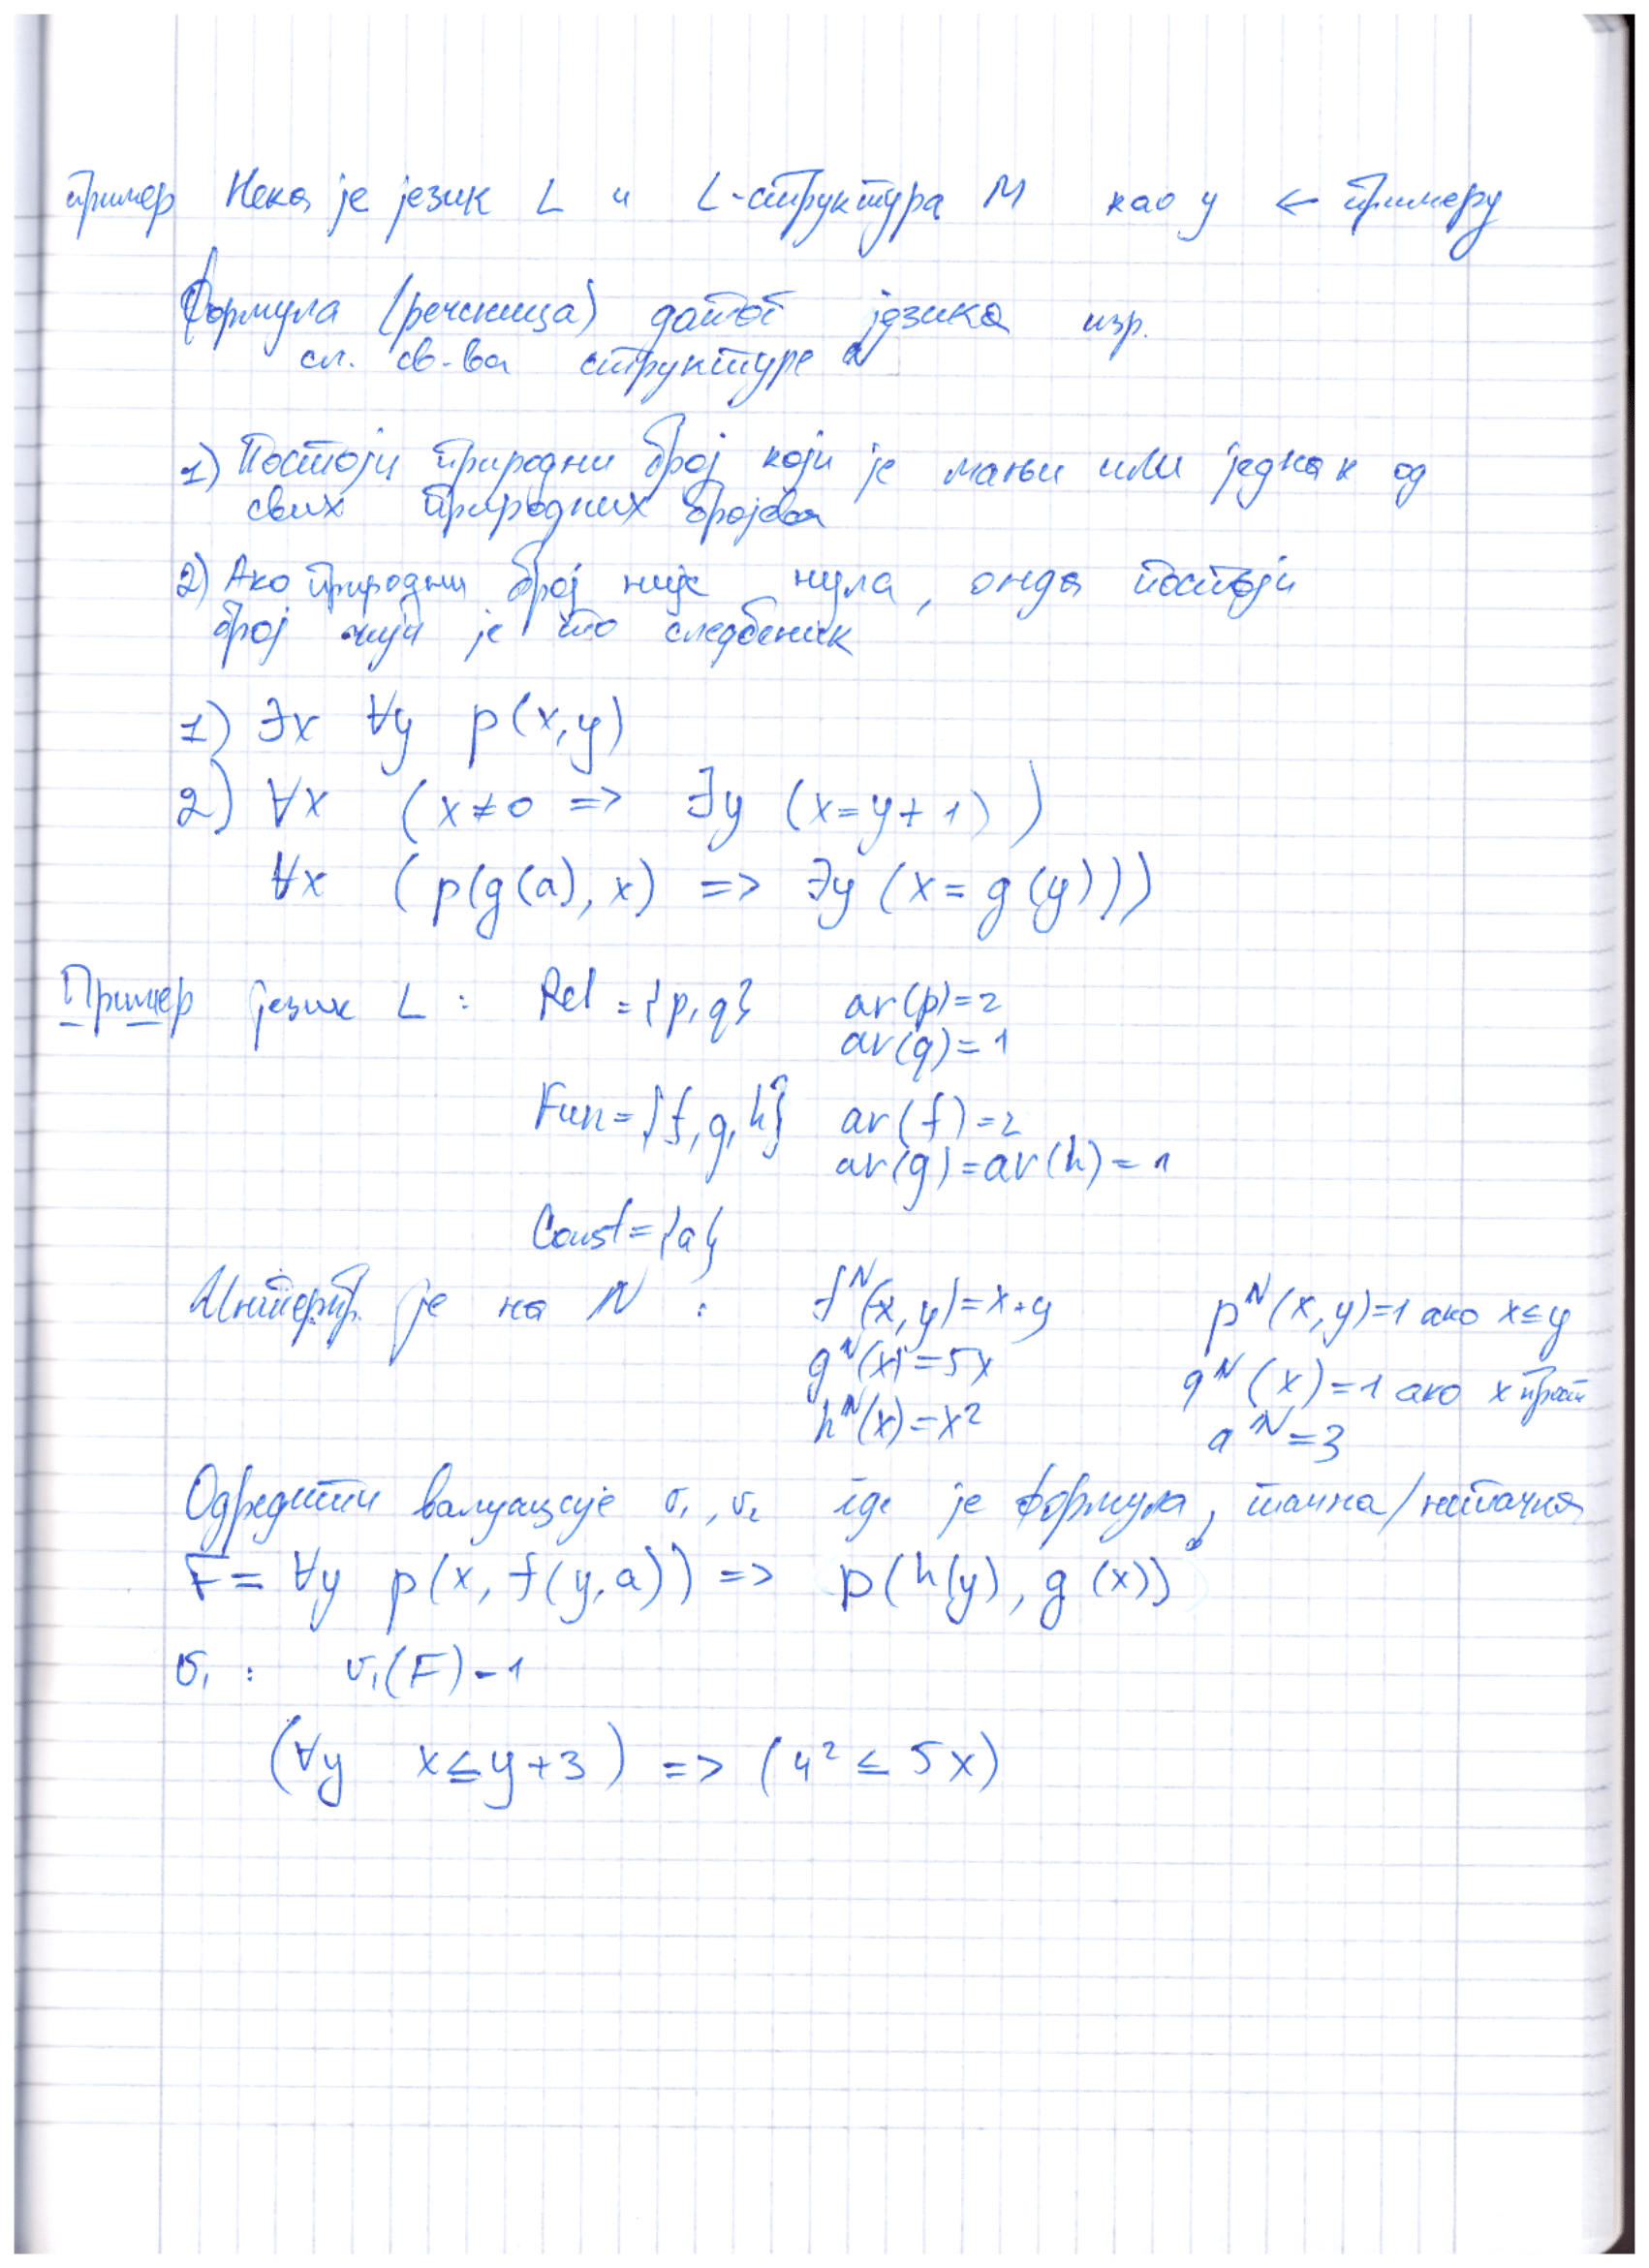 Пример Нека је језик L и L-структура M као у ← примеру
Формула (реченица) датог језика изр.
сл. св-ва структуре N
1) Постоји природни број који је мањи или једнак од
свих природних бројева
2) Ако природни број није нула, онда постоји
број чији је то следбеник
1) ∃x ∀y p(x,y)
2) ∀x (x≠0 => ∃y (x=y+1))
∀x (p(g(a),x) => ∃y (x=g(y)))
Пример језик L : Rel = {p,q} ar(p)=2
ar(q)=1
Fun={f,g,h} ar(f)=2
ar(g)=ar(h)=1
Const={a}
Интерпр. је на N : f^N(x,y)=x+y p^N(x,y)=1 ако x≤y
g^N(x)=5x q^N(x)=1 ако x прост
h^N(x)=x² a^N=3
Одредити валуације v₁, v₂ где је формула, тачна/нетачна
F= ∀y p(x, f(y,a)) => p(h(y), g(x))
v₁ : v₁(F)=1
(∀y x≤y+3) => (y² ≤ 5x)